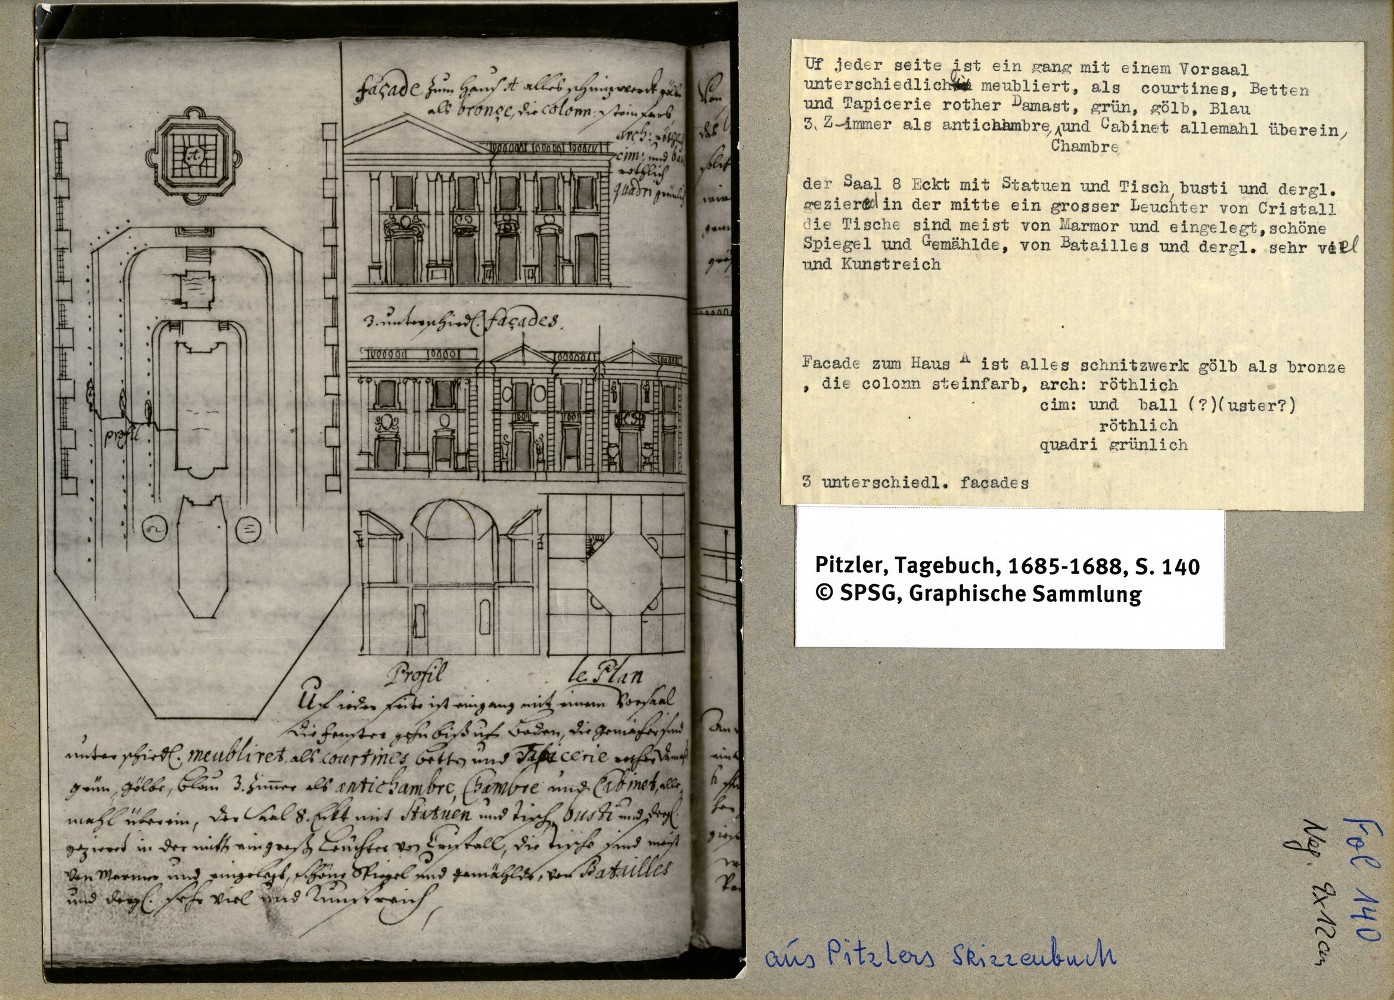 façade zum Hauß A alles schnitzwerk gölb
als bronce, die colonn: steinfarb
arch: röthl
cim: und bal
röthlich
quadri grünlich
3. unterschiedl. façades.
profil
A
Profil
le Plan
Uf ieder seite ist ein gang mit einem Vorsaal
die fenster gehn biß uf boden, die gemächer sind
unterschiedl. meubliret, als courtines, betten und Tapicerie rother Damast
grün, gölbe, blau 3. Zimmer als antichambre, Chambre und Cabinet, alle
mahl überein, der Saal 8. Eckt mit Statuen und tisch, busti und dergl.
gezieret in der mitte ein groß Leuchter von Cristall, die tische sind meist
von Marmor und eingelegt, schöne Spiegel und gemählde, von Batailles
und dergl. sehr viel und Kunstreich,
Uf jeder seite ist ein gang mit einem Vorsaal
unterschiedlich meubliert, als courtines, Betten
und Tapicerie rother Damast, grün, gölb, Blau
3, Z-immer als antichambre, und Cabinet allemahl überein,
Chambre
der Saal 8 Eckt mit Statuen und Tisch, busti und dergl.
gezieret in der mitte ein grosser Leuchter von Cristall
die Tische sind meist von Marmor und eingelegt, schöne
Spiegel und Gemählde, von Batailles und dergl. sehr viel
und Kunstreich
Facade zum Haus A ist alles schnitzwerk gölb als bronze
, die colonn steinfarb, arch: röthlich
cim: und ball (?)(uster?)
röthlich
quadri grünlich
3 unterschiedl. facades
Pitzler, Tagebuch, 1685-1688, S. 140
© SPSG, Graphische Sammlung
aus Pitzlers Skizzenbuch
Fol 140
Neg. 9x12cm